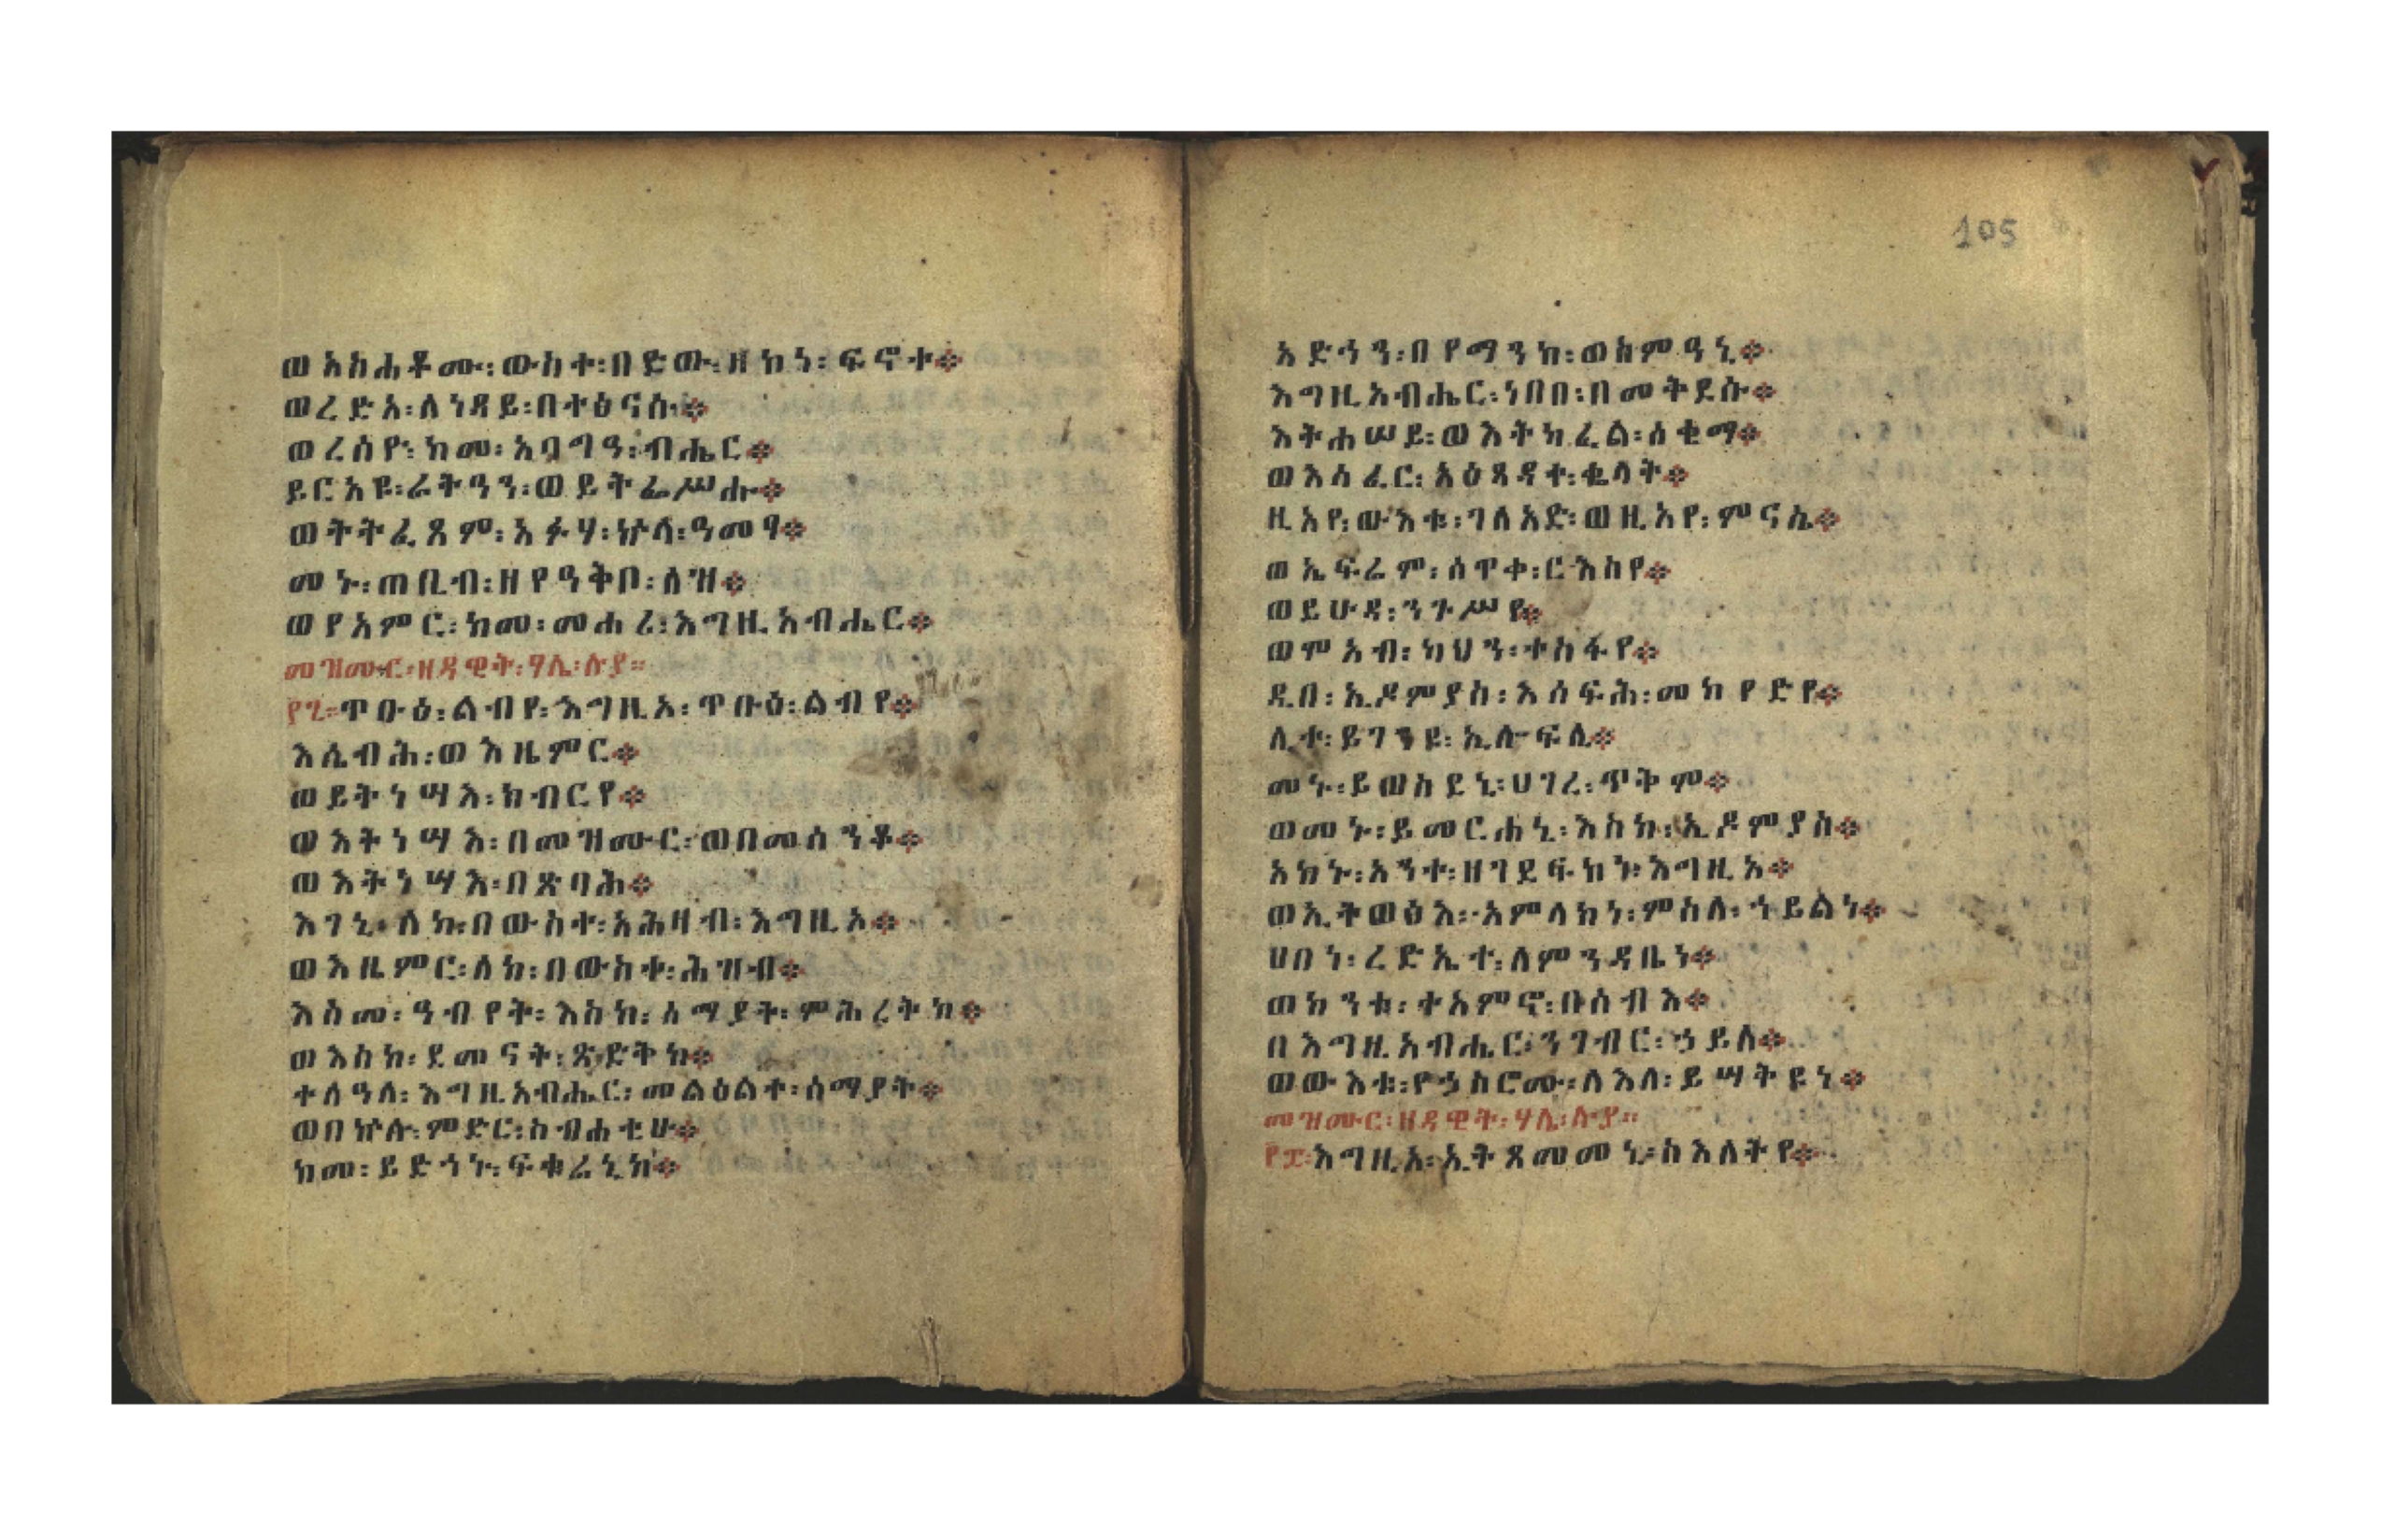 ወአስሐቶሙ፡ውስተ፡በድው፡ዘከነ፡ፍኖተ።
ወረድአ፡ለነዳይ፡በተፅናሱ።
ወረሰዮ፡ከመ፡አባግዓ፡ብሔር።
ይርአዩ፡ራትዓን፡ወይትፌሥሑ።
ወትትፈጸም፡አፉሃ፡ኵላ፡ዓመፃ።
መኑ፡ጠቢብ፡ዘየዓቅቦ፡ለዝ።
ወየአምር፡ከመ፡መሐሪ፡እግዚአብሔር።
መዝሙር፡ዘዳዊት፡ሃሌ፡ሉያ።
፻፯።ጥቡዕ፡ልብየ፡እግዚአ፡ጥቡዕ፡ልብየ።
እሴብሕ፡ወእዜምር።
ወይትነሣእ፡ክብርየ።
ወእትነሣእ፡በመዝሙር፡ወበመሰንቆ።
ወእትነሣእ፡በጽባሕ።
እገኒ፡ለከ፡በውስተ፡አሕዛብ፡እግዚአ።
ወእዜምር፡ለከ፡በውስተ፡ሕዝብ።
እስመ፡ዓብየት፡እስከ፡ሰማያት፡ምሕረትከ።
ወእስከ፡ደመናት፡ጽድቅከ።
ተለዓለ፡እግዚአብሔር፡መልዕልተ፡ሰማያት።
ወበኵሉ፡ምድር፡ስብሐቲሁ።
ከመ፡ይድኀኑ፡ፍቁራኒከ።
105
አድኅን፡በየማንከ፡ወስምዓኒ።
እግዚአብሔር፡ነበበ፡በመቅደሱ።
እትሐሠይ፡ወእትካፈል፡ሰቂማ።
ወእሳፈር፡አዕጻዳተ፡ቄላት።
ዚአየ፡ውእቱ፡ገለአድ፡ወዚአየ፡ምናሴ።
ወኤፍሬም፡ሰጥቀ፡ርእስየ።
ወይሁዳ፡ንጉሥየ።
ወሞአብ፡ካህን፡ተስፋየ።
ዲበ፡ኢዶምያስ፡እሰፍሕ፡መከየድየ።
ሊተ፡ይገንዩ፡ኢሎፍሊ።
መኑ፡ይወስደኒ፡ሀገረ፡ጥቅም።
ወመኑ፡ይመርሐኒ፡እስከ፡ኢዶምያስ።
አክኑ፡አንተ፡ዘገደፍከነ፡እግዚአ።
ወኢትወፅእ፡አምላክነ፡ምስለ፡ኀይልነ።
ሀበነ፡ረድኤተ፡ለምንዳቤነ።
ወከንቱ፡ተአምኖ፡በሰብእ።
በእግዚአብሔር፡ንገብር፡ኃይለ።
ወውእቱ፡የኃስሮሙ፡ለእለ፡ይሣቅዩነ።
መዝሙር፡ዘዳዊት፡ሃሌ፡ሉያ።
፻፰።እግዚአ፡ኢትጸመመኒ፡ስእለትየ።